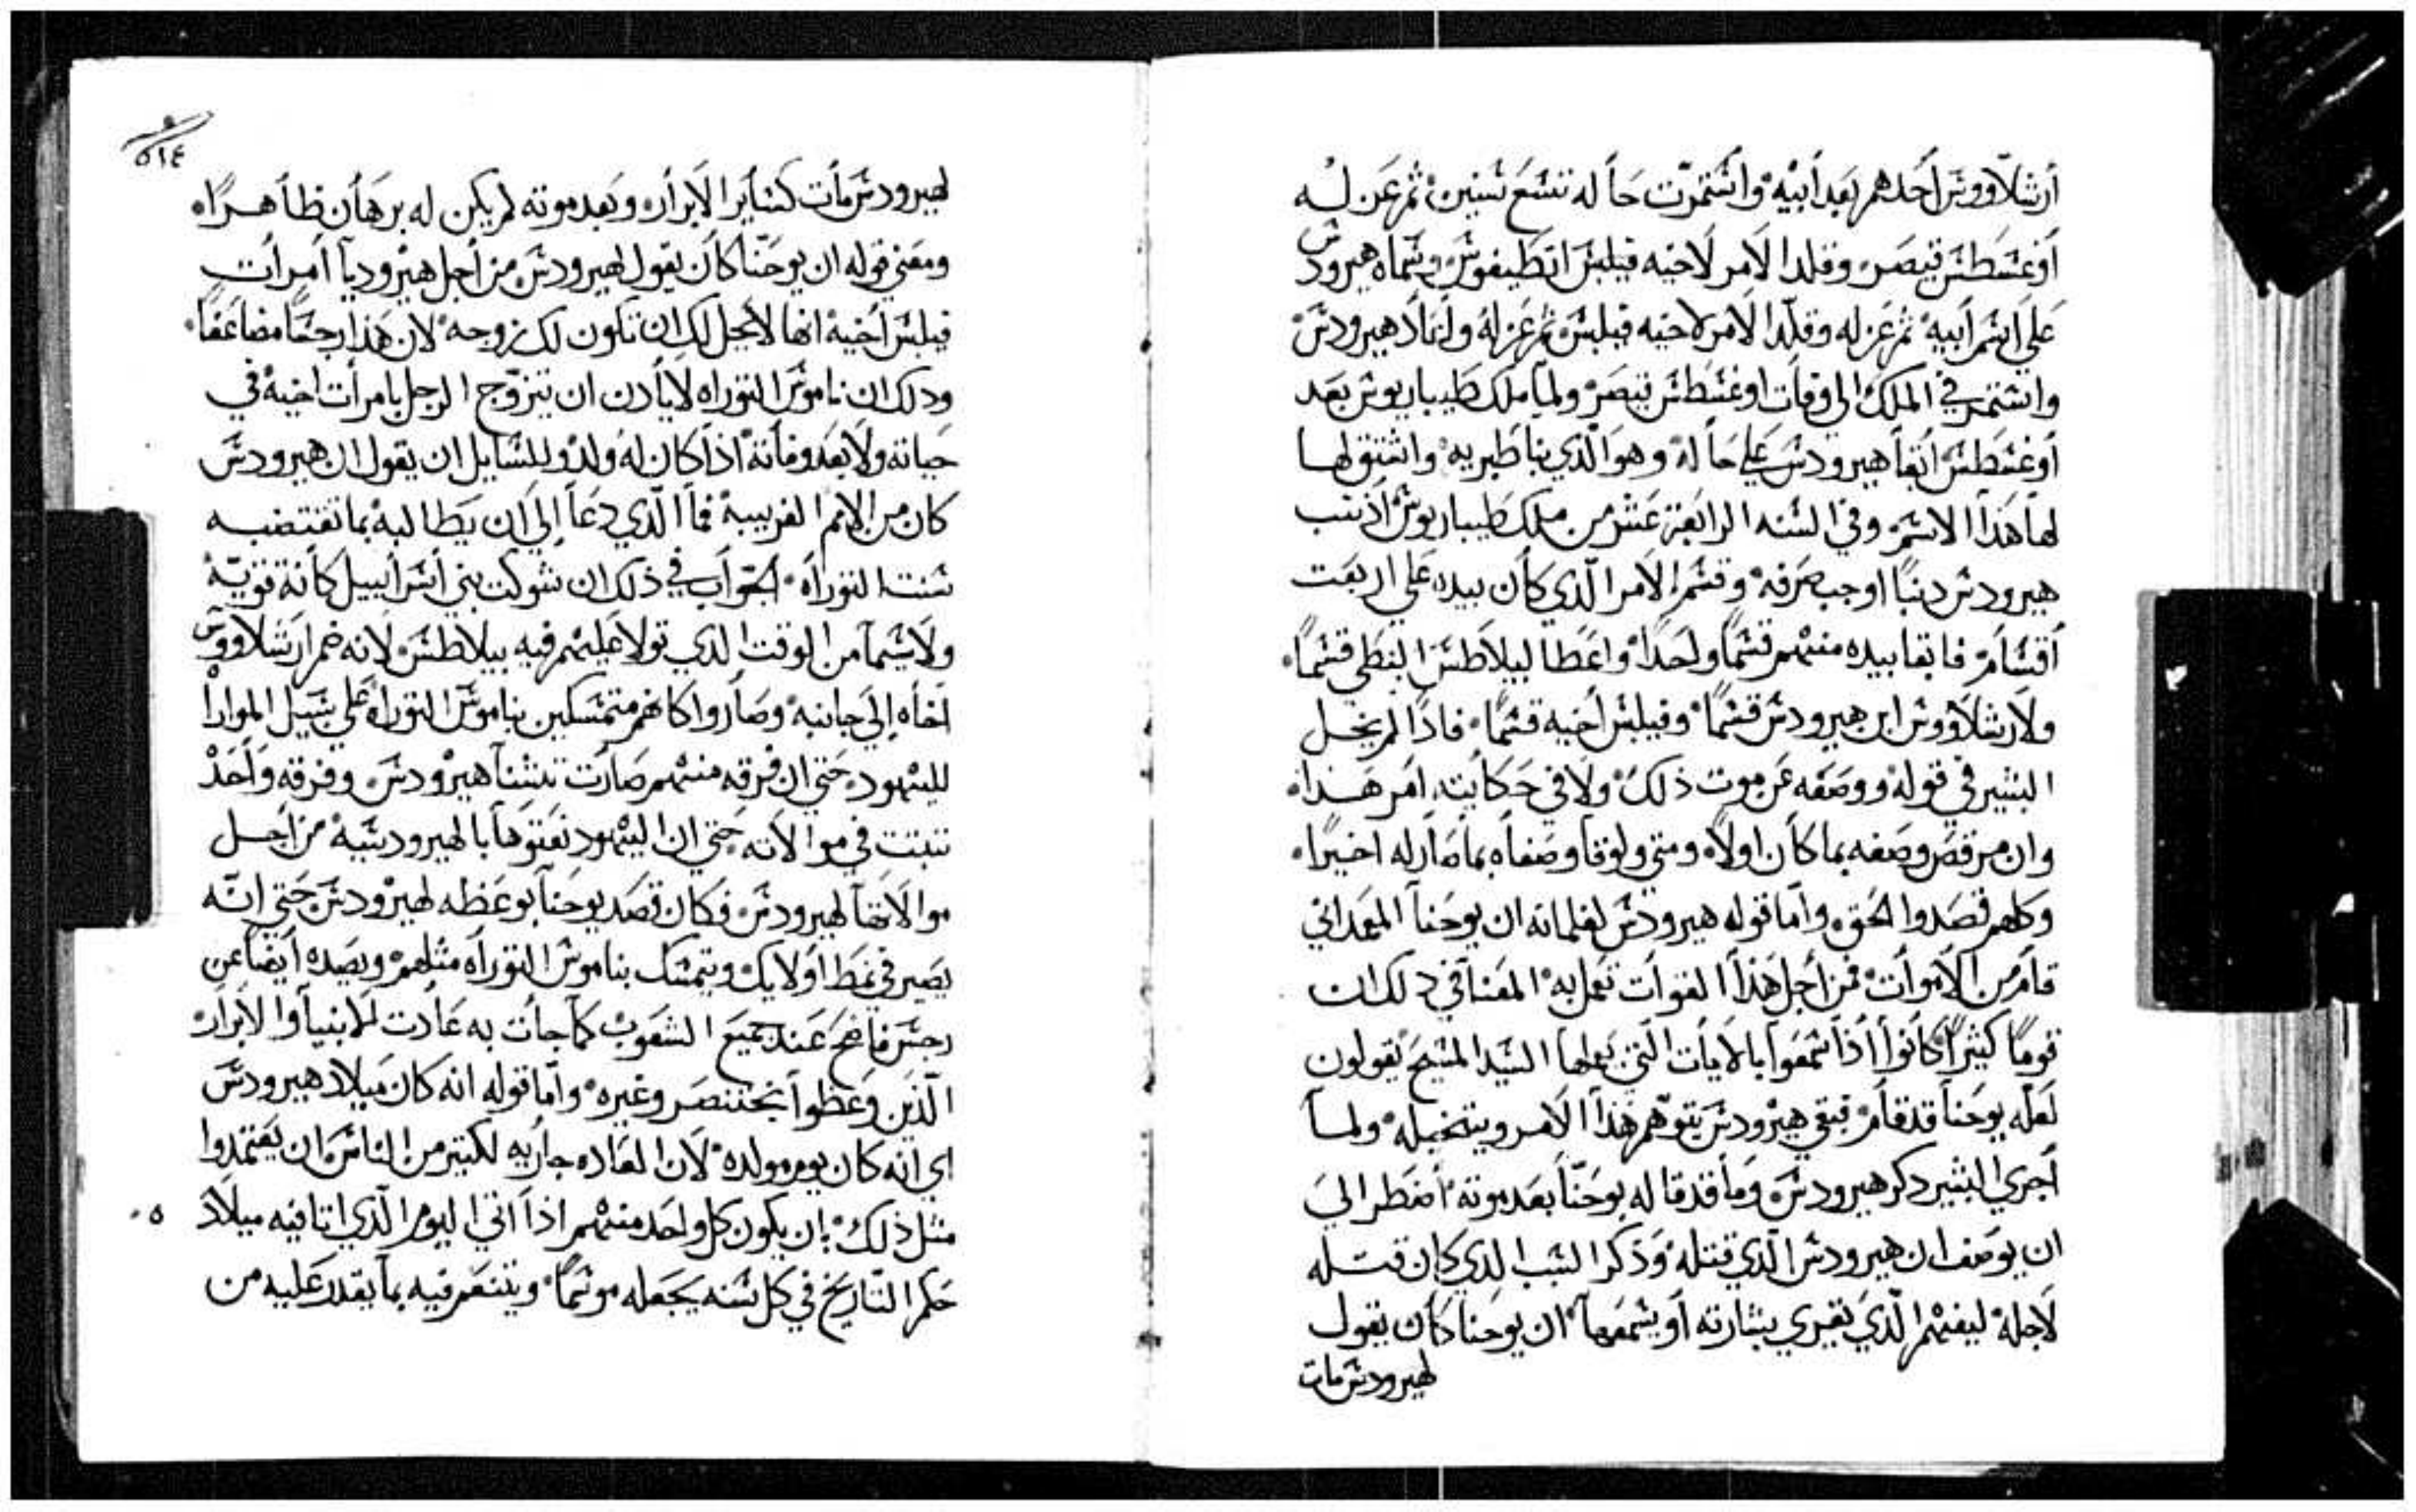 أرشلاووش أحدهم بعد أبيه وأشتمرّت حاله تشع شنين ثم عزله
أوغشطش قيصر وقلد الامر لاخيه فيلبش انطيفوش وشماه هيرودش
علي اشم أبيه ثم عزله وقلّد الامر لاخيه فيلبش ثم عزله وأعاد هيرودش
واشتمر في الملك الي وفات اوغشطش قيصر ولما ملك طيباريوش بعد
أوغشطش أبقا هيرودش علي حاله وهو الّذي بنا طبريه واشتق لها
لها هذا الاشم وفي الشنه الرابعة عشر من ملك طيباريوش أذنب
هيرودش دنباً اوجب صرفه وقشم الامر الّذي كان بيده علي اربعت
أقشام فابقا بيده منهم قشماً واحداً واعطا لبيلاطش النبطي قشماً
ولارشلاووش ابن هيرودش قشماً وفيلبش أخيه قشماً فاذا لم يخل
البشير في قوله ووصفه عن موت ذلك ولا في حكايته امر هذا
وان مرقص وصفه بما كان اولاً ومتي ولوقا وصفاه بما صار له اخيراً
وكلهم قصدوا الحق واما قوله هيرودش لغلمانه ان يوحنا المعمداني
قام من الاموات فمن أجل هذا القوات تعمل به المعنا في دلك ان
قوماً كثيراً كانوا أذا شمعوا بالايات التي يعملها الشيد المشيح يقولون
لعلّه يوحنا قد قام فبقي هيرودش يتوهم هذا الامر ويتخيله ولما
أجري البشير دكر هيرودش وما قد قاله يوحنّا بعد موته أضطر الي
ان يوصف ان هيرودش الّذي قتله وذكر الشبب الدي كان قتله
لاجله ليفهم الّذي يقري بشارته أو يشمعها ان يوحنا كان يقول
لهيرودش مات
٥١٤
لهيرودش مات كشاير الابرار وبعد موته لم يكن له برهان ظاهراً
ومعني قوله ان يوحنّا كان يقول لهيرودش من أجل هيروديا أمرأت
فيلبش أخيه انها لا يحل لك ان تكون لك زوجه لان هذا رجشاً مضاعفاً
ودلك ان ناموش التوراه لا يادن ان يتزوّج الرجل بامرأت اخيه في
حياته ولا بعد وفاته اذا كان له ولد وللشايل ان يقول ان هيرودش
كان من الامم الغريبة فما الّذي دعا إلي ان يطالبه بما تقتضيه
شنت التوراه الجوّاب في ذلك ان شوكت بني أشراييل كانة قويّة
ولا شيما من الوقت الدي تولا عليهم فيه بيلاطش لانه ضم ارشلاووش
أخاه إلي جانبه وصاروا كانهم متمشكين بناموش التوراه علي شبيل الموارا
لليهود حتي ان فرقه منهم صارت تشنأ هيرودش وفرقه وأحد
تتبتت في موالاته حتي ان اليهود نعتوها بالهيرودشيه من اجل
موالاتها لهيرودش فكان قصد يوحنا بوعظه لهيرودش حتي انّه
يصير في نمط أولايك ويتمشك بناموش التوراه مثلهم ويصده أيضاً عن
رجش فاضح عند جميع الشعوب كما جات به عادت للانبيا والابرار
الّذين وعظوا بختنصر وغيره وامّا قوله انه كان ميلاد هيرودش
اي انه كان يوم مولده لان العاده جاريه لكتير من الناش ان يعتمدوا
مثل ذلك بان يكون كل واحد منهم اذا اتي اليوم الّذي اتا فيه ميلاد
حكم التّاريخ في كل شنه يجعله موشماً ويتنعم فيه بما يقدر عليه من